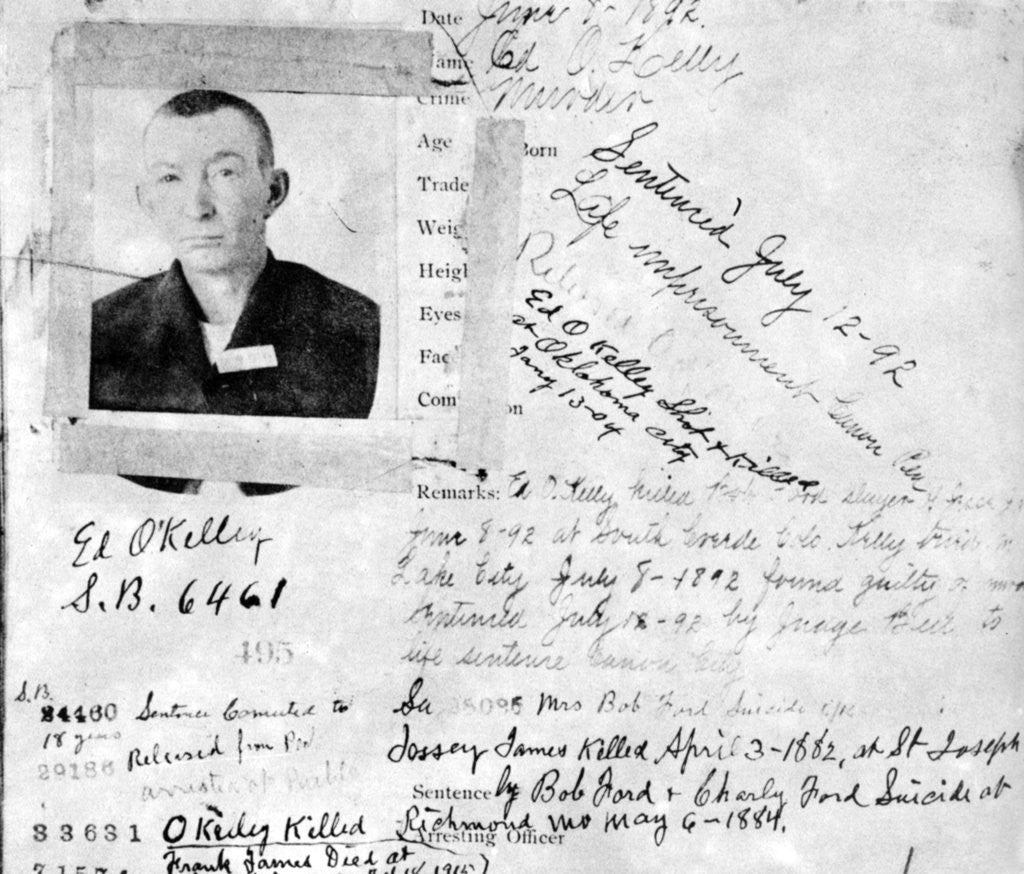 Date June 8- 1892.
Name Ed O Kelly
Crime Murder
Age Born
Trade
Weig
Heigh
Eyes
Fac
Com on
Sentenced July 12-92
Life imprisonment Canon Pen
Ed O Kelley Shot & Killed
at Oklahoma City
Jany 13-04
Remarks: Ed O. Kelly killed Bob Ford slayer of
June 8-92 at South Creede Colo. Kelly tried in
Lake City July 8-1892 found guilty of
sentenced July 12-92 by Judge to
life sentence Canon City
Ed O'Kelley
S.B. 6461
495
S.B.
24460 Sentence Comuted to
18 years
Released from Pen
29186 arrested at
33631 O Kelley Killed
Frank James Died at
35095 Mrs Bob Ford Suicide
Jossey James Killed April 3-1882, at St Joseph
Sentence by Bob Ford & Charly Ford Suicide at
Richmond Mo May 6-1884.
Arresting Officer